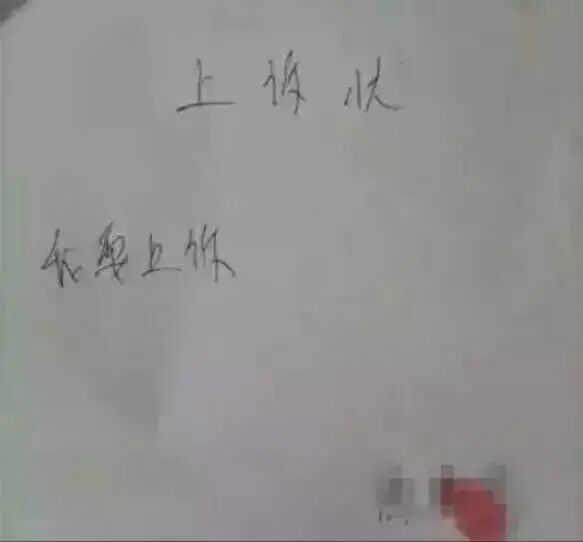 上诉状
我要上诉